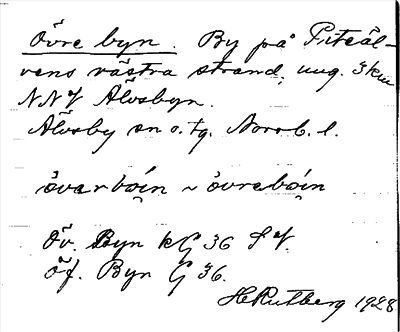 Övre byn. By på Piteäl-
vens västra strand, ung. 3 km
NNV Älvsbyn.
Älvsby sn o. tg. Norrb. l.
öv. Byn kG 36 SV.
öf. Byn G 36.
H Rutberg 1928